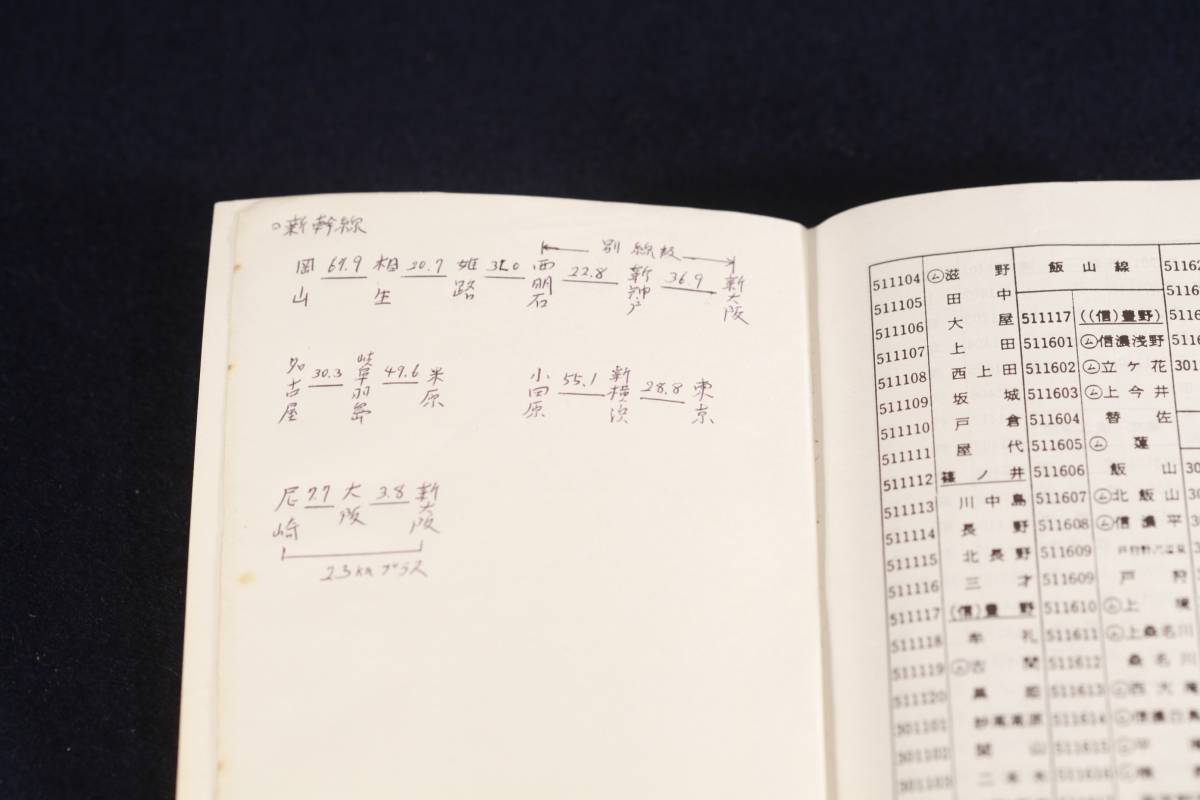 ○新幹線
別線扱
岡山 67.9 相生 20.7 姫路 31.0 西明石 22.8 新神戸 36.9 新大阪
名古屋 30.3 岐阜羽島 49.6 米原
小田原 55.1 新横浜 28.8 東京
尼崎 7.7 大阪 3.8 新大阪
23km プラス
511104 ㋰滋野
511105 田中
511106 大屋
511107 上田
511108 西上田
511109 坂城
511110 戸倉
511111 屋代
511112 篠ノ井
511113 川中島
511114 長野
511115 北長野
511116 三才
511117 (信)豊野
511118 牟礼
511119 ㋰古間
511120 黒姫
501101 妙高高原
501102 関山
501103 二本木
飯山線
511117 ((信)豊野)
511601 ㋰信濃浅野
511602 ㋰立ケ花
511603 ㋰上今井
511604 替佐
511605 ㋰蓮
511606 飯山
511607 ㋰北飯山
511608 ㋰信濃平
511609
511609 戸狩
511610 ㋰上境
511611 ㋰上桑名川
511612 桑名川
511613 ㋰西大滝
511614 ㋰信濃白鳥
511615
511616
51162
5116
5116
5116
301
30
30
30
3